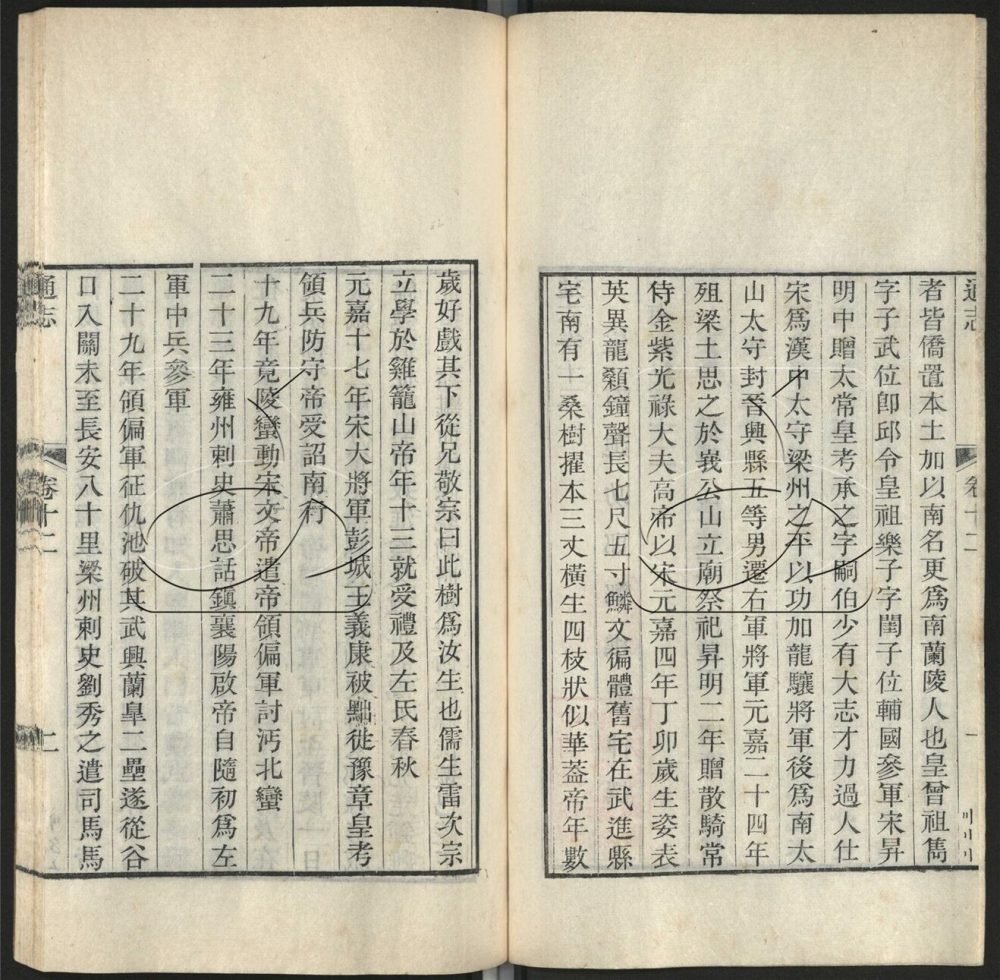 通志
卷十二
一
者皆僑置本土加以南名更爲南蘭陵人也皇曾祖雋
字子武位卽邱令皇祖樂子字閨子位輔國參軍宋昇
明中贈太常皇考承之字嗣伯少有大志才力過人仕
宋爲漢中太守梁州之平以功加龍驤將軍後爲南太
山太守封晉興縣五等男遷右軍將軍元嘉二十四年
殂梁土思之於峩公山立廟祭祀昇明二年贈散騎常
侍金紫光祿大夫高帝以宋元嘉四年丁卯歲生姿表
英異龍顙鐘聲長七尺五寸鱗文徧體舊宅在武進縣
宅南有一桑樹擢本三丈橫生四枝狀似華蓋帝年數
歲好戲其下從兄敬宗曰此樹爲汝生也儒生雷次宗
立學於雞籠山帝年十三就受禮及左氏春秋
元嘉十七年宋大將軍彭城王義康被黜徙豫章皇考
領兵防守帝受詔南行
十九年竟陵蠻動宋文帝遣帝領偏軍討沔北蠻
二十三年雍州刺史蕭思話鎭襄陽啟帝自隨初爲左
軍中兵參軍
二十九年領偏軍征仇池破其武興蘭臯二壘遂從谷
口入關未至長安八十里梁州刺史劉秀之遣司馬馬
通志
卷十二
二